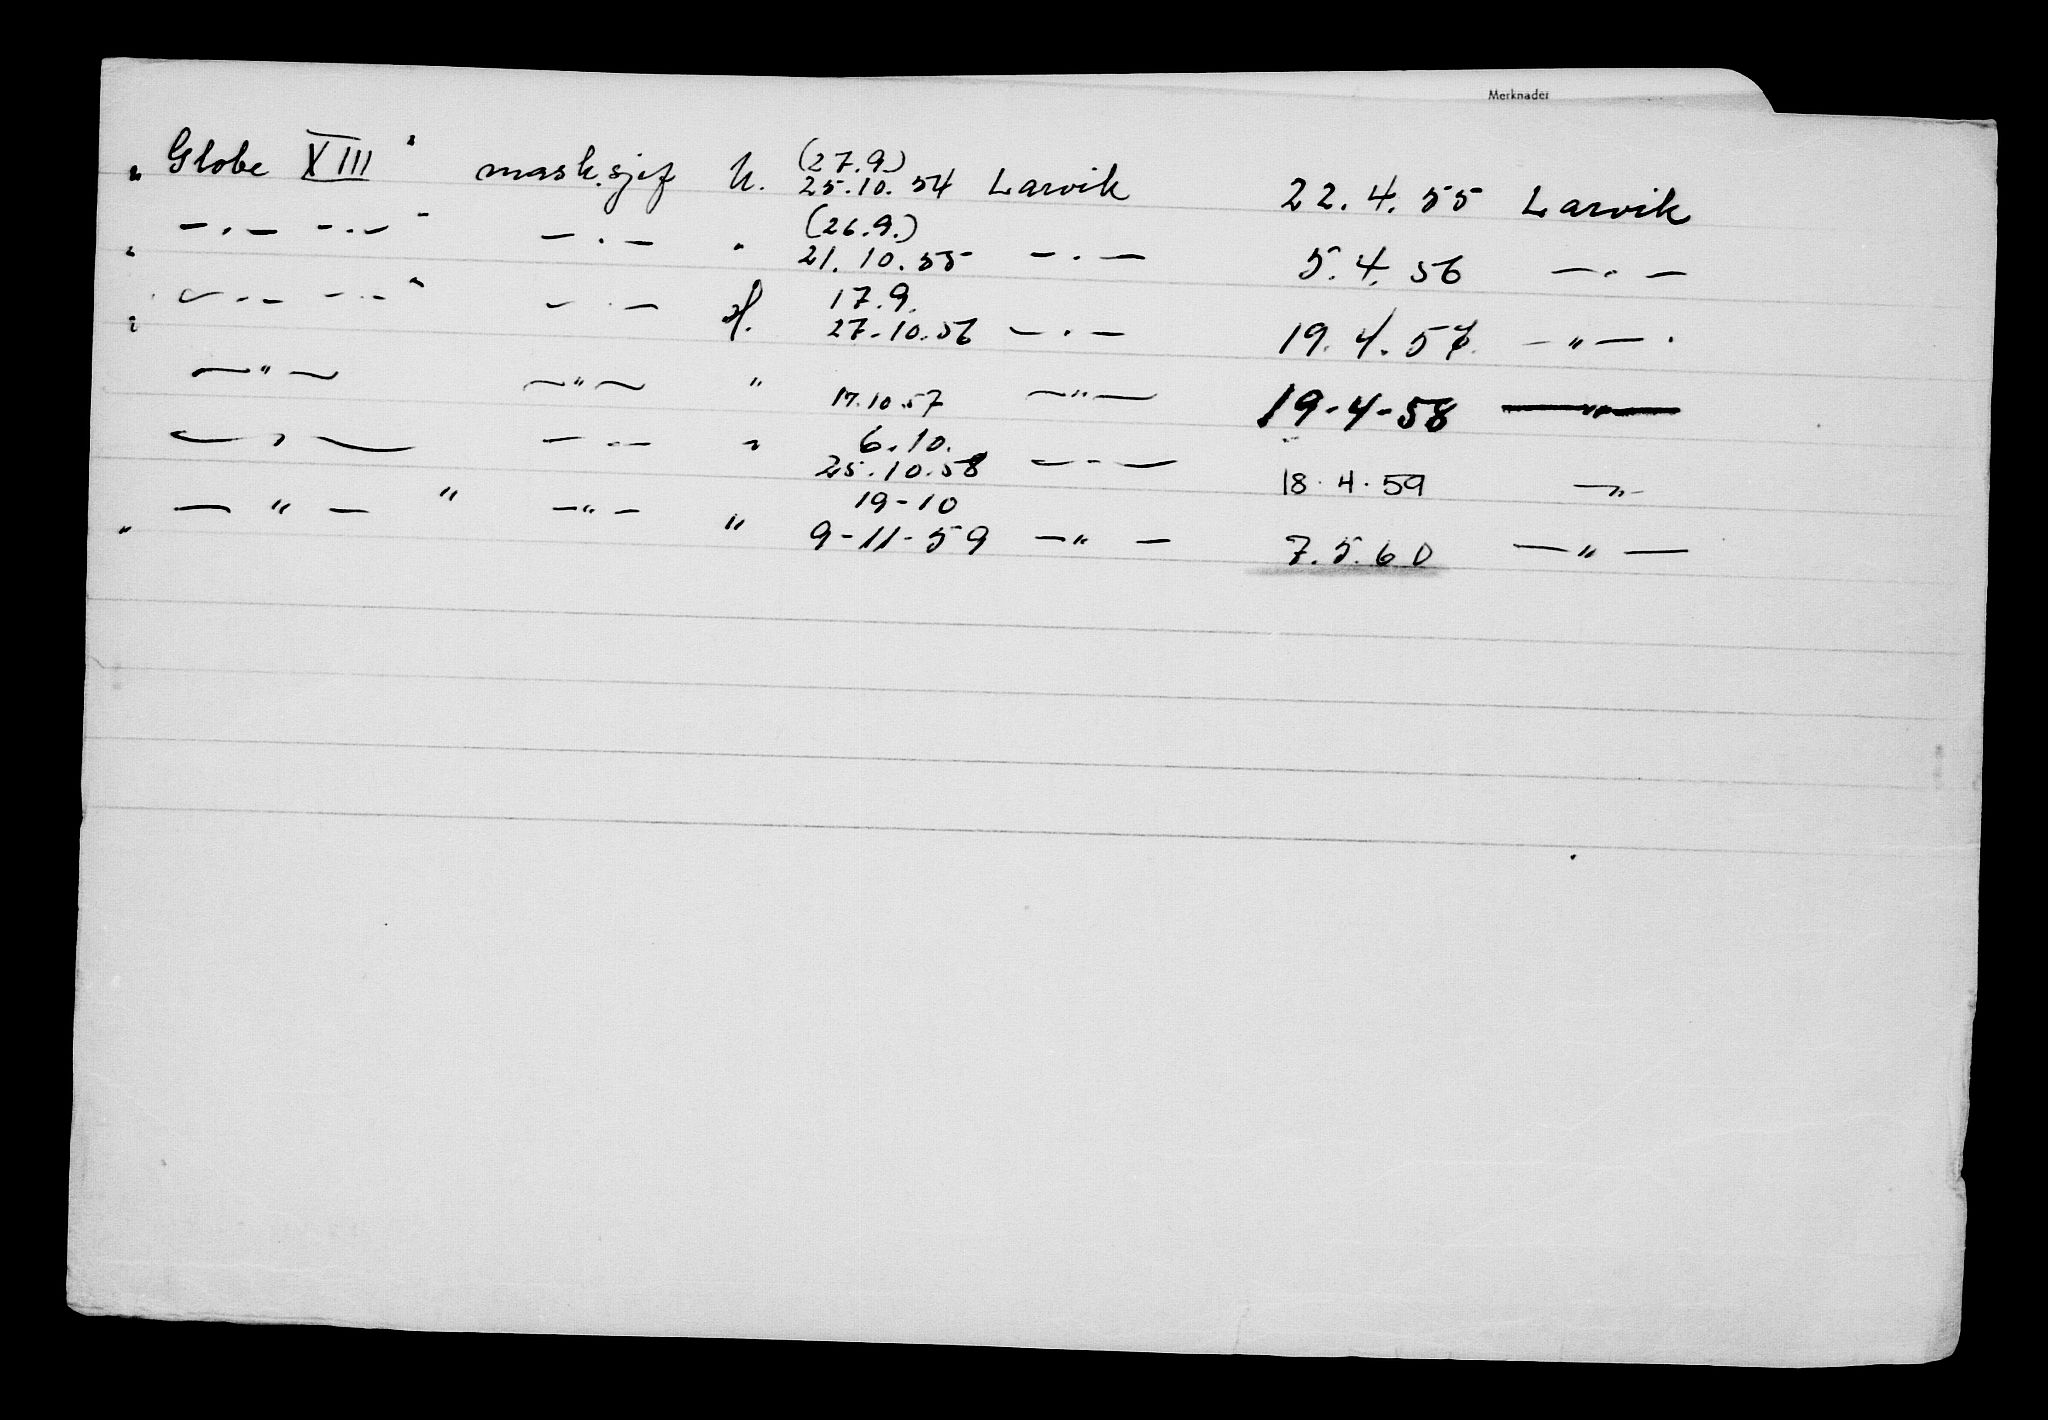 Merknader
„Globe XIII" mask.sjef h. (27.9.) 25.10.54 Larvik 22.4.55 Larvik
„ — . — — . — " — . — " (26.9.) 21.10.55 — . — 5.4.56 — " —
„ — . — — . — " — . — H. 17.9. 27.10.56 — . — 19.4.57. — " — .
— " — — " — " 17.10.57 — " — 19-4-58 — " —
— " — — " — " 6.10. 25.10.58 — " — 18.4.59 — " —
„ — " — " — " — " 19-10 9-11-59 — " — 7.5.60 — " —